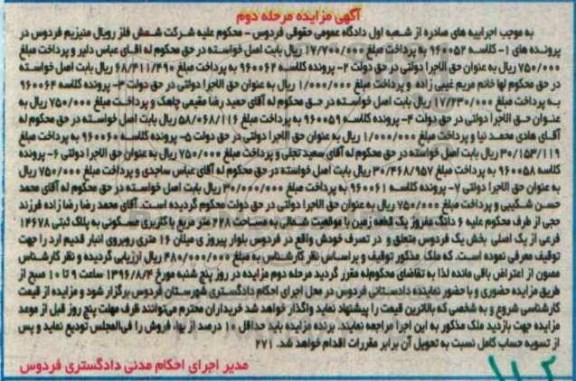 آگهی مزایده مرحله دوم
به موجب اجراییه های صادره از شعبه اول دادگاه عمومی حقوقی فردوس - محکوم علیه شرکت شمش فلز رویال منیزیم فردوس در
پرونده های ۱- کلاسه ۹۶۰۰۵۲ به پرداخت مبلغ ۱۷/۷۰۰/۰۰۰ ریال بابت اصل خواسته در حق محکوم له آقای عباس دلیر و پرداخت مبلغ
۷۵۰/۰۰۰ ریال به عنوان حق الاجرا دولتی در حق دولت ۲- پرونده کلاسه ۹۶۰۰۶۲ به پرداخت مبلغ ۶۸/۴۱۱/۴۹۰ ریال بابت اصل خواسته
در حق محکوم لها خانم مریم غیبی زاده و پرداخت مبلغ ۱/۰۰۰/۰۰۰ ریال به عنوان حق الاجرا دولتی در حق دولت ۳- پرونده کلاسه ۹۶۰۰۶۴
به پرداخت مبلغ ۱۷/۲۳۰/۰۰۰ ریال بابت اصل خواسته در حق محکوم له آقای حمید رضا مقیمی چاهک و پرداخت مبلغ ۷۵۰/۰۰۰ ریال به
عنوان حق الاجرا دولتی در حق دولت ۴- پرونده کلاسه ۹۶۰۰۵۹ به پرداخت مبلغ ۵۸/۰۶۸/۱۱۶ ریال بابت اصل خواسته در حق محکوم له
آقای هادی محمد نیا و پرداخت مبلغ ۱/۰۰۰/۰۰۰ ریال به عنوان حق الاجرا دولتی در حق دولت ۵- پرونده کلاسه ۹۶۰۰۶۰ به پرداخت مبلغ
۳۰/۱۵۳/۱۱۹ ریال بابت اصل خواسته در حق محکوم له آقای سعید تجلی و پرداخت مبلغ ۷۵۰/۰۰۰ ریال به عنوان حق الاجرا دولتی ۶- پرونده
کلاسه ۹۶۰۰۵۸ به پرداخت مبلغ ۳۰/۴۶۸/۹۵۷ ریال بابت اصل خواسته در حق محکوم له آقای عباس ساجدی و پرداخت مبلغ ۷۵۰/۰۰۰ ریال
به عنوان حق الاجرا دولتی ۷- پرونده کلاسه ۹۶۰۰۶۱ به پرداخت مبلغ ۳۰/۰۰۰/۰۰۰ ریال بابت اصل خواسته در حق محکوم له آقای محمد
حسن شکیبی و پرداخت مبلغ ۷۵۰/۰۰۰ ریال به عنوان حق الاجرا دولتی در حق دولت محکوم گردیده است. آقای محمد رضا رضا زاده فرزند
حجی از طرف محکوم علیه ۶ دانگ مفروز یک قطعه زمین با موقعیت شمالی به مساحت ۲۲۸ متر مربع با کاربری مسکونی به پلاک ثبتی ۱۴۶۷۸
فرعی از یک اصلی بخش یک فردوس متعلق و در تصرف خودش واقع در فردوس بلوار پیروزی میلان ۱۶ متری روبروی انبار قدیم ارد را جهت
توقیف معرفی نموده است. که ملک مذکور توقیف و براساس نظر کارشناس به مبلغ ۴۸۰/۰۰۰/۰۰۰ ریال ارزیابی گردیده و نظر کارشناس
مصون از اعتراض باقی مانده لذا به تقاضای محکوم‌له مقرر گردید مرحله دوم مزایده در روز پنج شنبه مورخ ۱۳۹۶/۸/۴ ساعت ۹ تا ۱۰ صبح از
طریق مزایده حضوری و با حضور نماینده دادستانی فردوس در محل اجرای احکام دادگستری شهرستان فردوس برگزار شود و مزایده از قیمت
کارشناسی شروع و به شخصی که بالاترین قیمت را پیشنهاد نماید واگذار خواهد شد خریداران محترم می‌توانند ظرف مهلت پنج روز قبل از موعد
مزایده جهت بازدید ملک مذکور به این اجرا مراجعه نمایند. برنده مزایده باید حداقل ۱۰ درصد از بهاء فروش را فی‌المجلس تودیع نماید و پس
از تسویه حساب کامل نسبت به تحویل آن برابر مقررات اقدام خواهد شد. ۲۷۱
مدیر اجرای احکام مدنی دادگستری فردوس